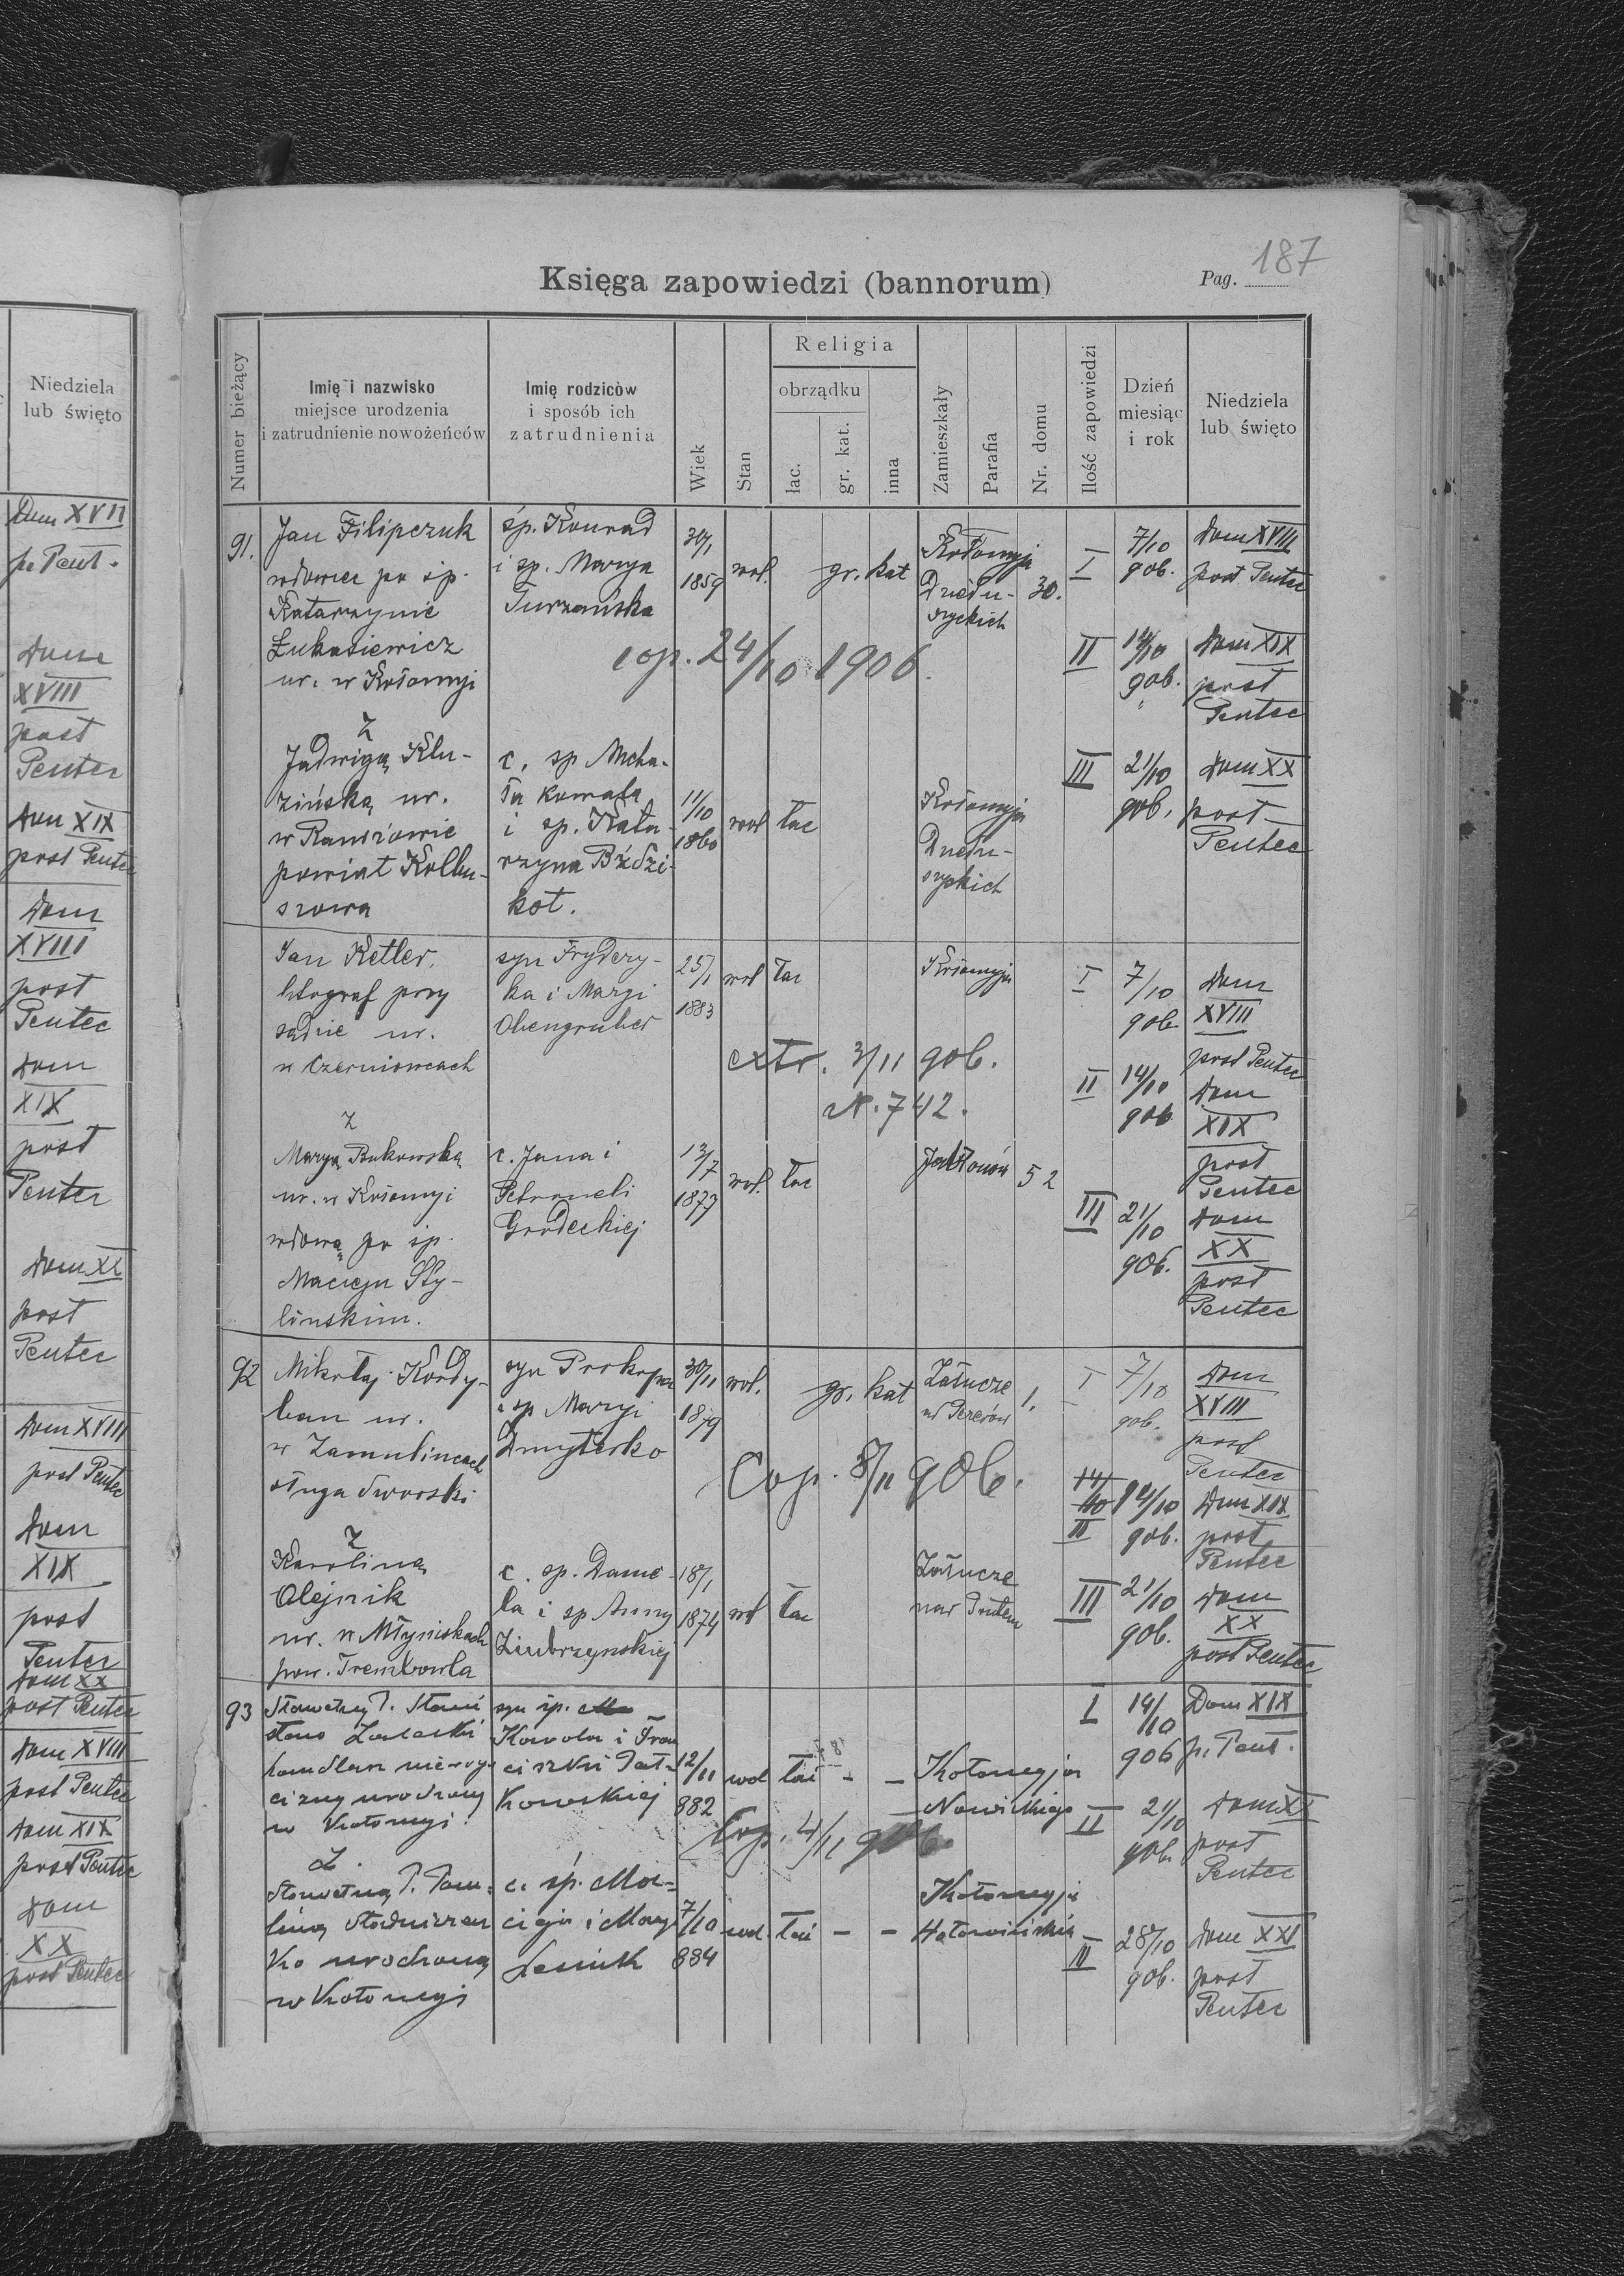 Niedziela
lub święto
Dom XVII
p. Pent.
Dom
XVIII
post
Pentec
Dom XIX
post Pentec
Dom
XVIII
post
Pentec
Dom
XIX
post
Pentec
Dom XX
post
Pentec
Dom XVIII
post Pentec
Dom
XIX
post
Pentec
Dom XX
post Pentec
Dom XVIII
post Pentec
Dom XIX
post Pentec
Dom
XX
post Pentec
Księga zapowiedzi (bannorum)
Pag. 187
Numer bieżący
Imię i nazwisko
miejsce urodzenia
i zatrudnienie nowożeńców
Imię rodziców
i sposób ich
zatrudnienia
Wiek
Stan
Religia
obrządku
łac.
gr. kat.
inna
Zamieszkały
Parafia
Nr. domu
Ilość zapowiedzi
Dzień
miesiąc
i rok
Niedziela
lub święto
91.
Jan Filipczuk
wdowiec po śp.
Katarzynie
Łukasiewicz
ur. w Kołomyi
śp. Konrad
i śp. Marya
Turzańska
30/1
1859
wol.
gr. kat
Kołomyja
Dziedu-
szyckich
30.
I
7/10
906.
Dom XVIII
post Pentec
cop. 24/10 1906.
II
14/10
906.
Dom XIX
post
Pentec
z
Jadwigą Klu-
zińską ur.
w Raniżowie
powiat Kolbu-
szowa
c. śp Micha-
ła kowala
i śp. Kata-
rzyna Bździ-
kot.
11/10
1860
wol
łac
Kołomyja
Dziedu-
szyckich
III
21/10
906.
Dom XX
post
Pentec
Jan Ketler,
litograf przy
sądzie ur.
w Czerniowcach
syn Frydery-
ka i Maryi
Obengruber
25/1
1883
wol
łac
Kołomyja
I
7/10
906
Dom
XVIII
post Pentec
extr. 3/11 906.
N. 742.
II
14/10
906
Dom
XIX
post
Pentec
z
Maryą Bukowską
ur. w Kołomyi
wdową po śp.
Macieju Sły-
lińskim.
c. Jana i
Petroneli
Grodeckiej
13/7
1877
wol.
łac
Jabłonów
52
III
21/10
906.
Dom
XX
post
Pentec
92
Mikołaj Kordy-
ban ur.
w Zamulincach
sługa dworski
syn Prokopa
i śp Maryi
Dmyterko
30/11
1879
wol.
gr. kat
Załucze
1.
I
7/10
906.
Dom
XVIII
post
Pentec
Cop. 8/11 906.
II
14/10
906.
Dom XIX
post
Pentec
z
Karoliną
Olejnik
ur. w Młyniskach
pow. Trembowla
c. śp. Danie-
la i śp Anny
Ziubrzynskiej
18/1
1874
wol
łac
Załucze
nad Prutem
III
21/10
906.
Dom
XX
post Pentec
93
Sławetny P. Stani
sław Zaleski
handlarz nieroga-
cizny urodzony
w Kołomyi
syn śp.
Karola i Fran
ciszki Pat-
kowskiej
12/11
882
wol
łać
-
-
Kołomyja
Nowickiego
I
14/10
906
Dom XIX
p. Pent.
Cop. 4/11 906
II
21/10
906
Dom XX
post
Pentec
Z.
Sławetną P. Pau-
liną Stadniczen
ko urodzoną
w Kołomyi
c. śp. Ma-
cieja i Maryi
Lesiuk
7/10
884
wol.
łać
-
-
Kołomyja
III
28/10
906.
Dom XXI
post
Pentec